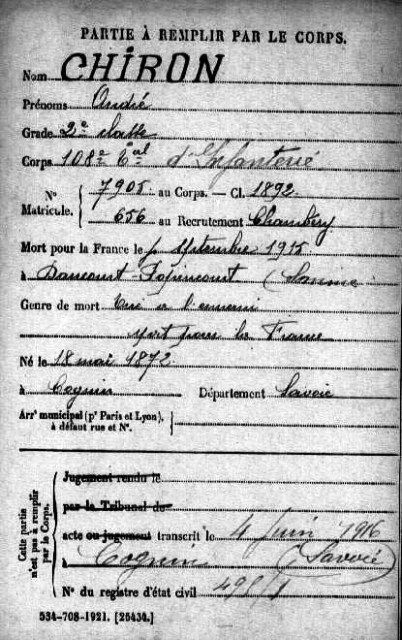 PARTIE À REMPLIR PAR LE CORPS.
Nom CHIRON
Prénoms André
Grade 2e classe
Corps 108e tal d'Infanterie
N° Matricule. { 7905 au Corps. — Cl. 1892
656 au Recrutement Chambéry
Mort pour la France le septembre 1915
à Dancourt-Popincourt (Somme
Genre de mort Tué à l'ennemi
Mort pour la France
Né le 18 mai 1872
à Cognin Département Savoie
Arrt municipal (pr Paris et Lyon), à défaut rue et N°. }
Cette partie n'est pas à remplir par le Corps.
Jugement rendu le
par le Tribunal de
acte ou jugement transcrit le 4 Juin 1916
à Cognin (Savoie)
N° du registre d'état civil 498/1
534-708-1921. [26434.]